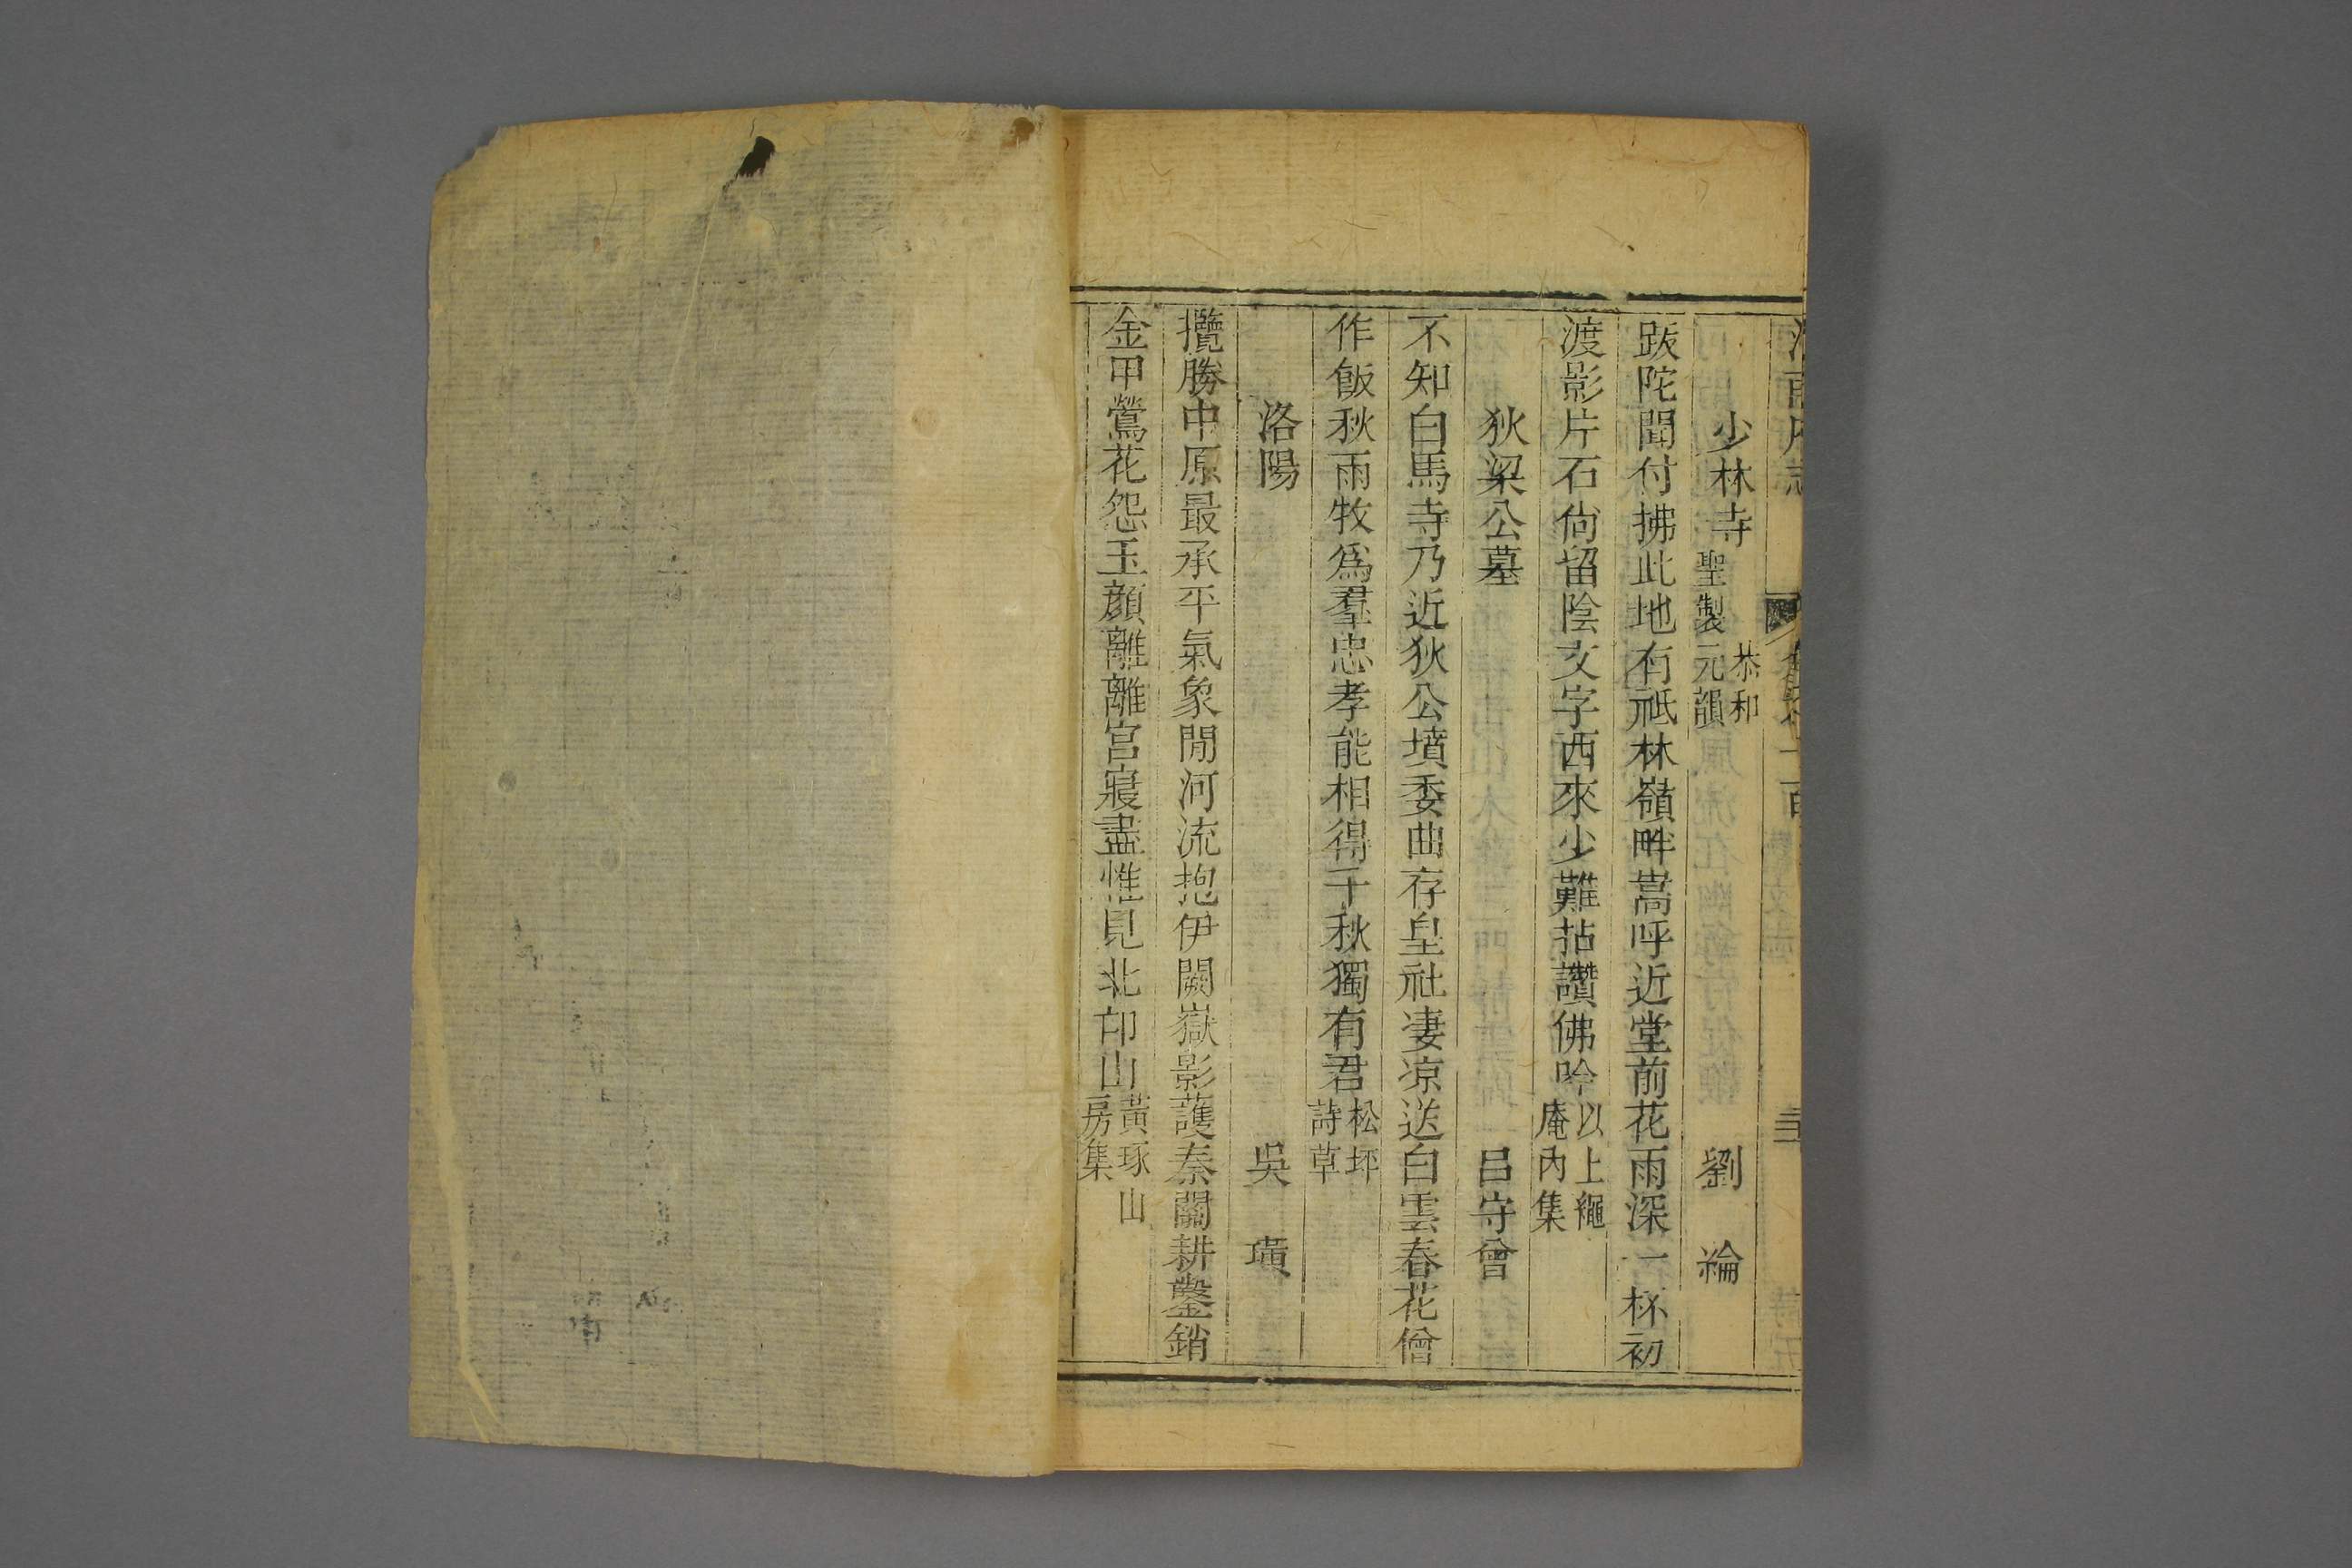 河南府志 卷一百
少林寺 恭和聖製元韻 劉綸
跋陀聞付拂此地有祇林嶺畔嵩呼近堂前花雨深一杯初
渡影片石尙留陰文字西來少難拈讚佛吟 以上繩庵內集
狄梁公墓 呂守曾
不知白馬寺乃近狄公墳委曲存皇社凄凉送白雲春花僧
作飯秋雨牧爲羣忠孝能相得千秋獨有君 松坪詩草
洛陽 吳璜
攬勝中原最承平氣象閒河流抱伊闕嶽影護秦關耕鑿銷
金甲鶯花怨玉顔離離宮寢盡惟見北邙山 黃琢山房集